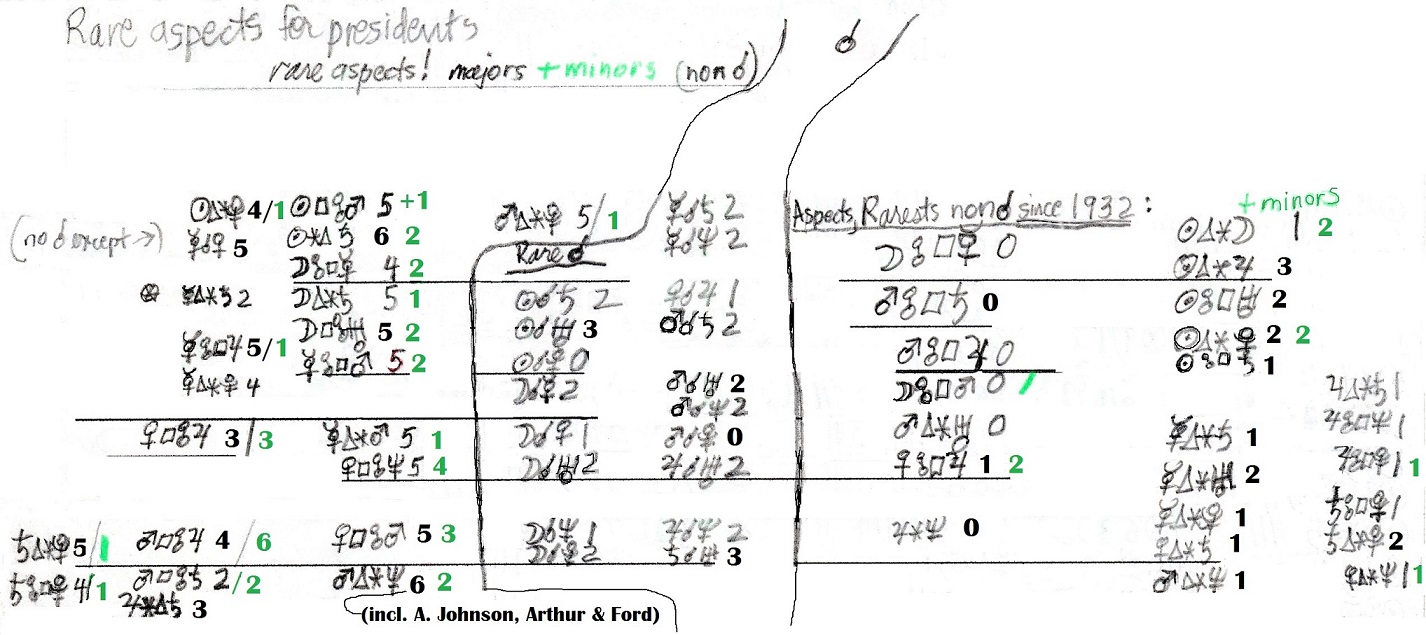 Rare aspects for presidents
rare aspects! majors + minors (non ☌)
☌
(no ☌ except →)
4/1
☿☌♀ 5
2
☿☍□♃ 5/1
4
♀□☍♃ 3/3
5/1
4/1
♂□☍♃ 4/6
♂□☍♄ 2/2
♃⚹△♄ 3
☉□☍♂ 5 +1
☉⚹△♄ 6 2
4 2
☽△⚹♄ 5 1
☽□☍♅ 5 2
☿☍□♂ 5 2
☿△⚹♂ 5 1
♀□☍♆ 5 4
♀□☍♂ 5 3
♂△⚹♆ 6 2
(incl. A. Johnson, Arthur & Ford)
♂△⚹♀ 5/1
Rare ☌
☉☌♄ 2
☉☌♅ 3
0
2
☽☌♀ 1
☽☌♅ 2
☽☌♆ 1
2
☿☌♄ 2
☿☌♆ 2
♀☌♃ 1
♂☌♄ 2
♂☌♅ 2
♂☌♆ 2
0
♃☌♅ 2
♃☌♆ 2
♄☌♅ 3
Aspects, Rarests non ☌ since 1932:
+ minors
0
♂☍□♄ 0
♂☍□♃ 0
☽☍□♂ 0 /
♂△⚹♅ 0
♀☍□♃ 1 2
♃⚹♆ 0
☉△⚹☽ 1 2
☉△⚹♃ 3
☉☍□♅ 2
2 2
☉☍□♄ 1
☿△⚹♄ 1
☿△⚹♅ 2
1
♀△⚹♄ 1
♂△⚹♆ 1
♃△⚹♄ 1
♃☍□♆ 1
1 1
1
2
1 1